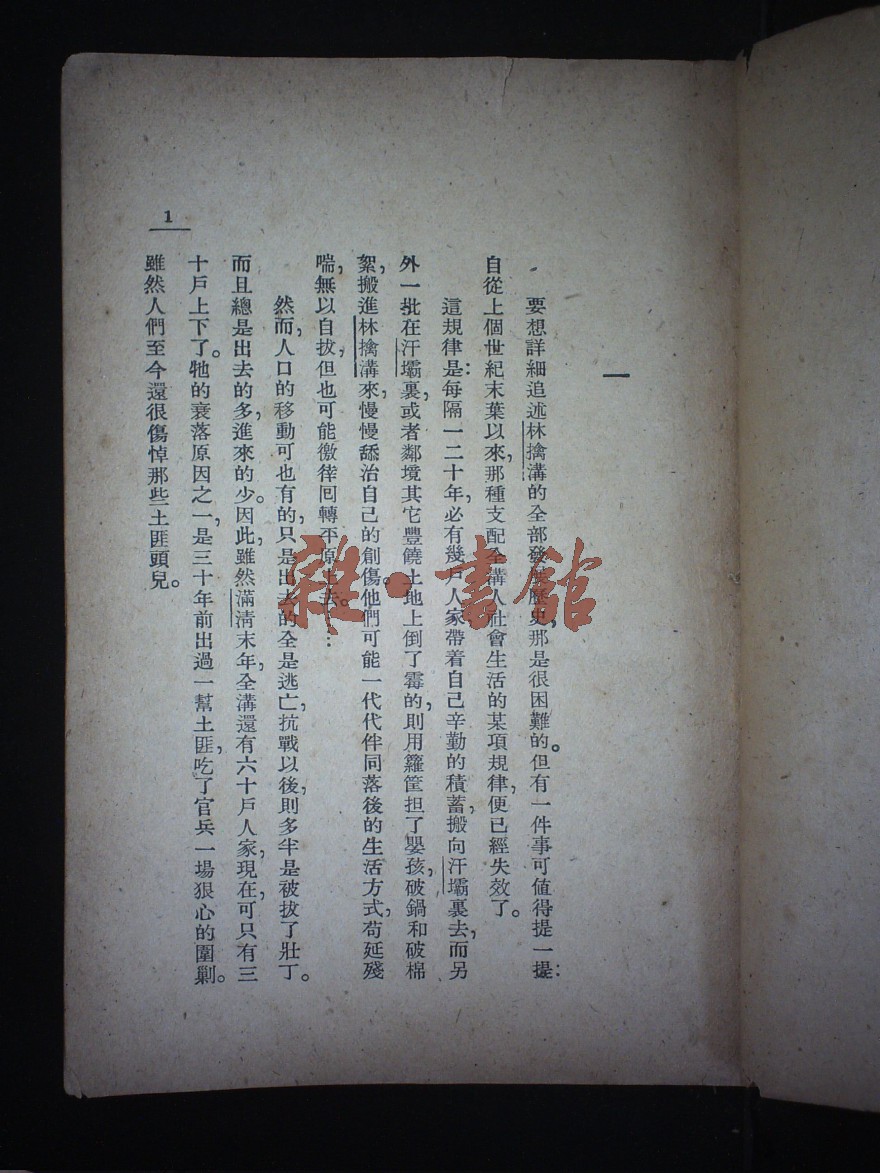 一
要想詳細追述林檎溝的全部發展歷史，那是很困難的。但有一件事可值得提一提：
自從上個世紀末葉以來，那種支配全溝人社會生活的某項規律，便已經失效了。
這規律是：每隔一二十年，必有幾戶人家帶着自己辛勤的積蓄，搬向汗壩裏去，而另
外一批在汗壩裏，或者鄰境其它豐饒土地上倒了霉的，則用籮筐担了嬰孩，破鍋和破棉
絮，搬進林檎溝來，慢慢舔治自己的創傷。他們可能一代代伴同落後的生活方式，苟延殘
喘，無以自拔，但也可能徼倖囘轉平原上去。…
然而，人口的移動可也有的，只是出去的全是逃亡，抗戰以後，則多半是被拔了壯丁。
而且總是出去的多，進來的少。因此，雖然滿清末年，全溝還有六十戶人家，現在，可只有三
十戶上下了。牠的衰落原因之一，是三十年前出過一幫土匪，吃了官兵一場狠心的圍剿。
雖然人們至今還很傷悼那些土匪頭兒。
1
雜·書館